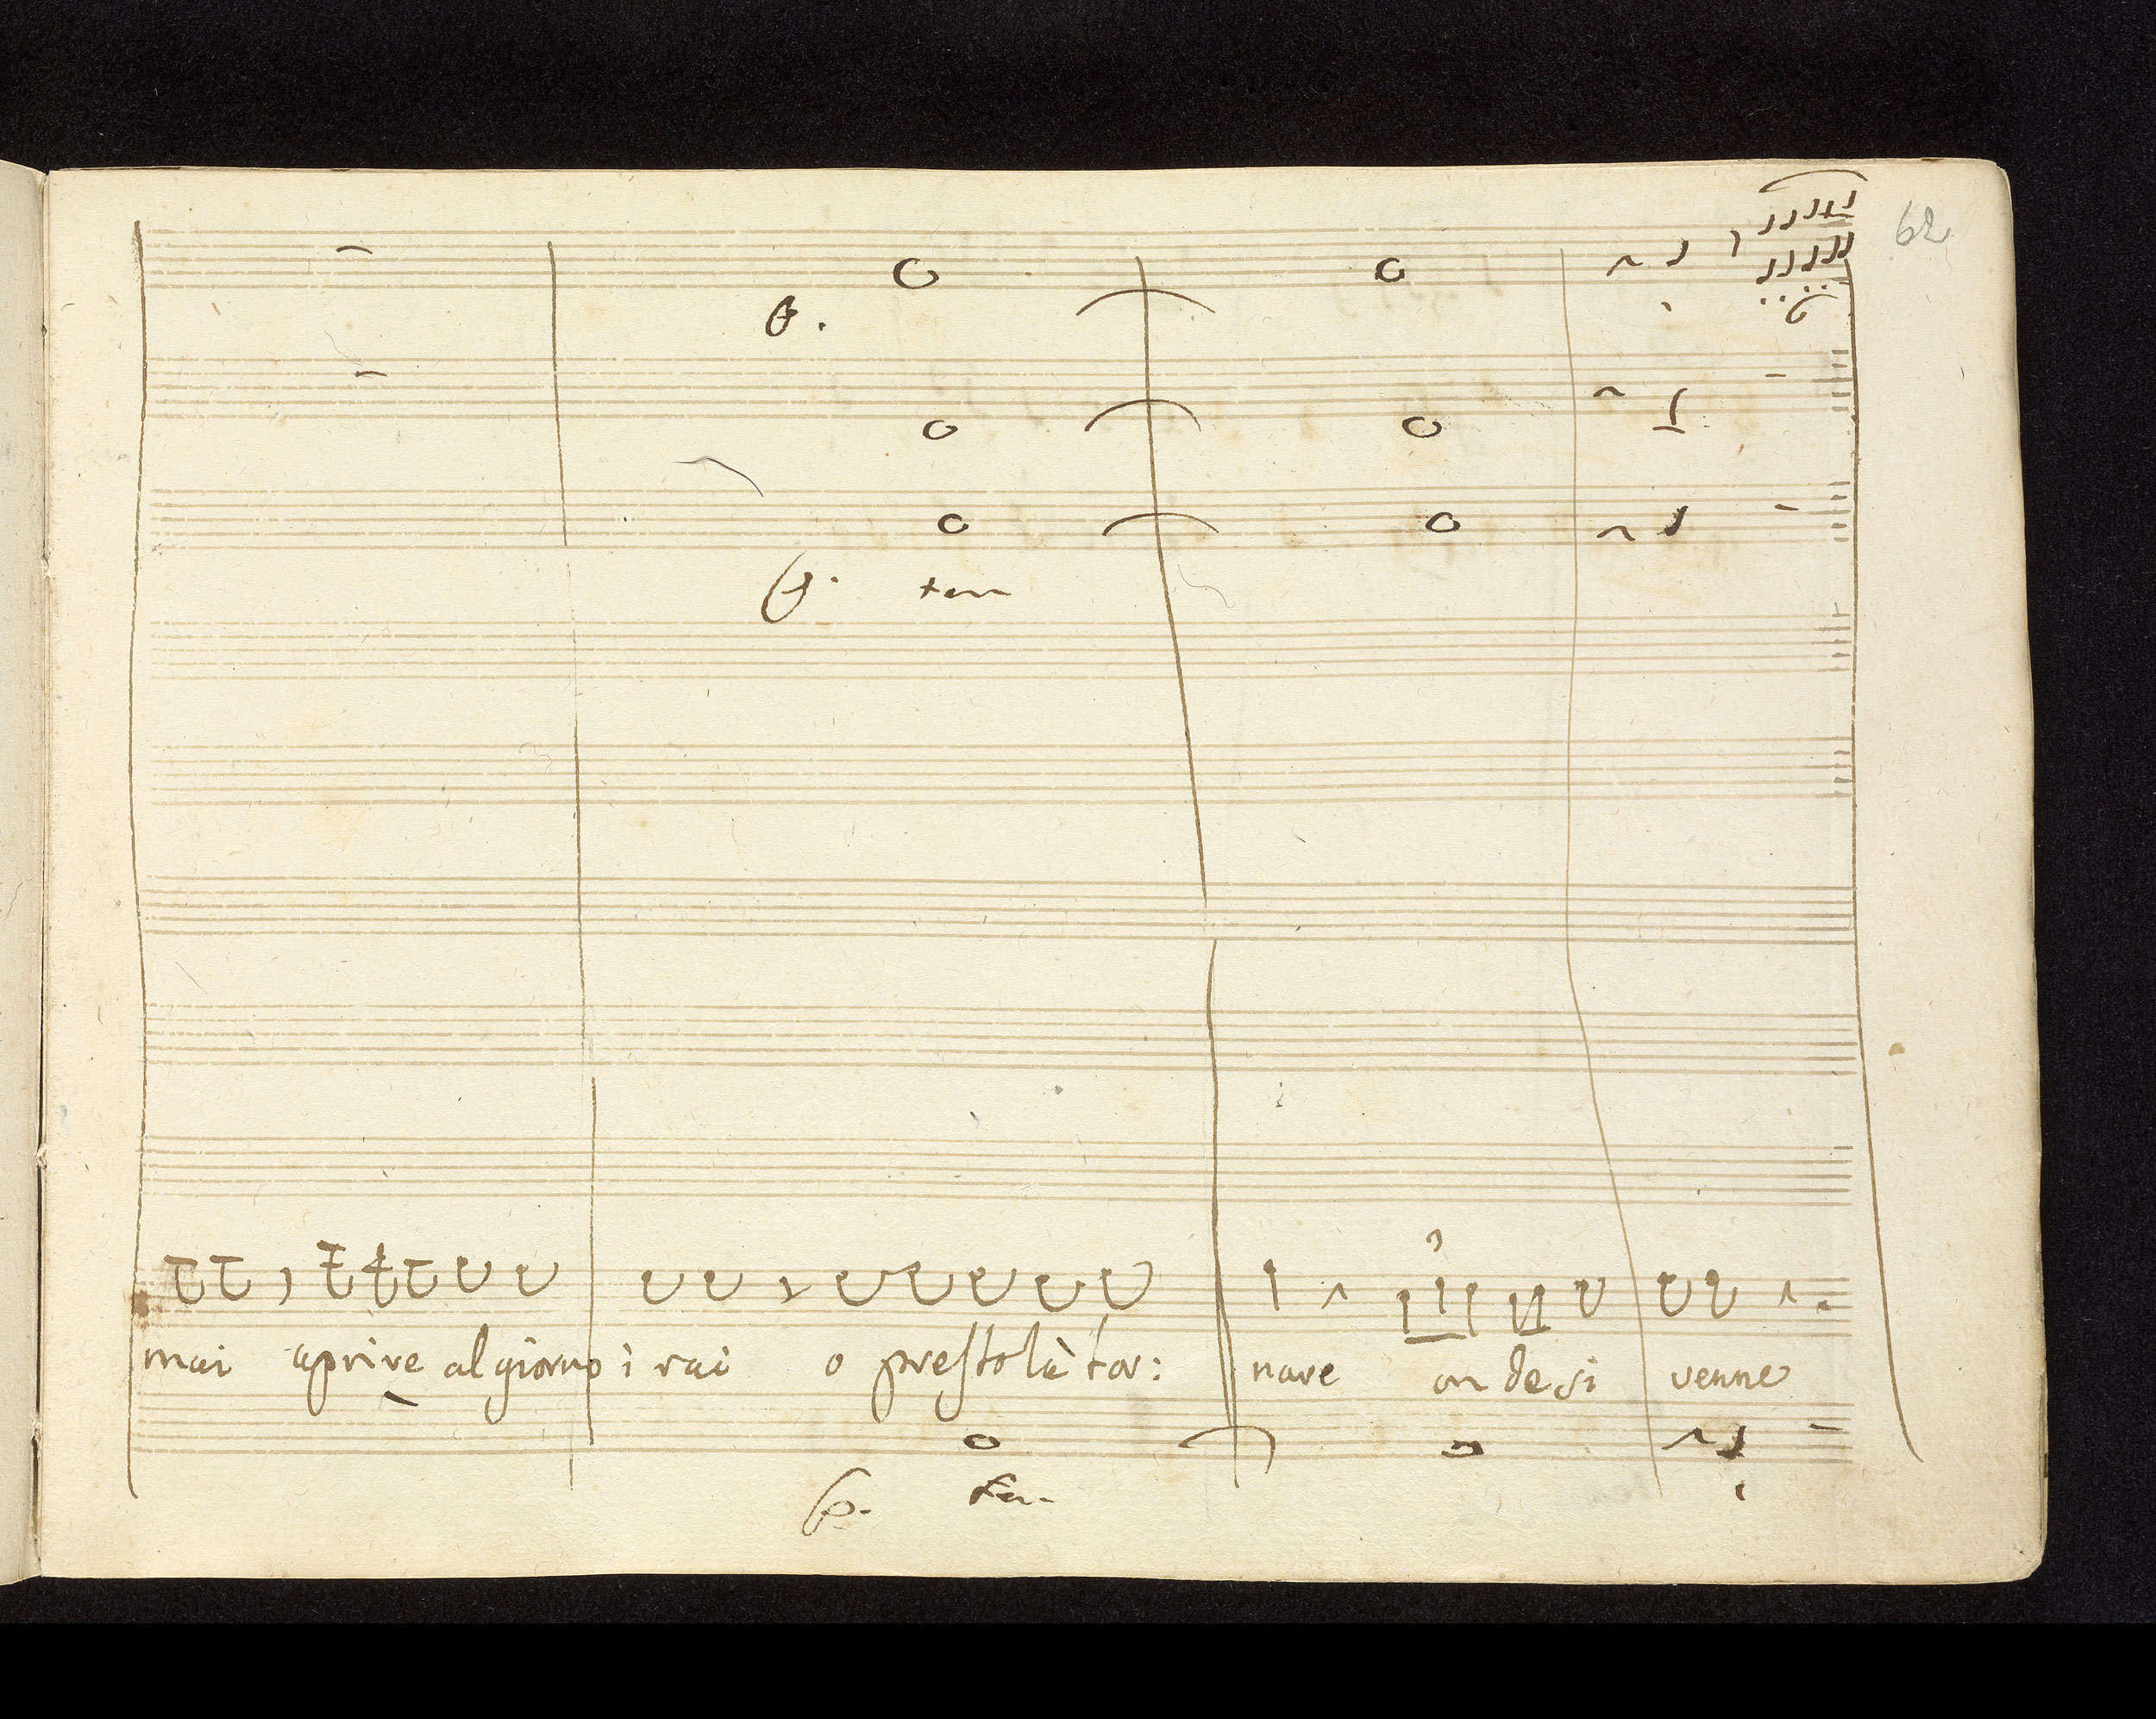 62
6
ten
3
mai aprire al giorno i rai o presto là tor: nare on de si venne
ten.